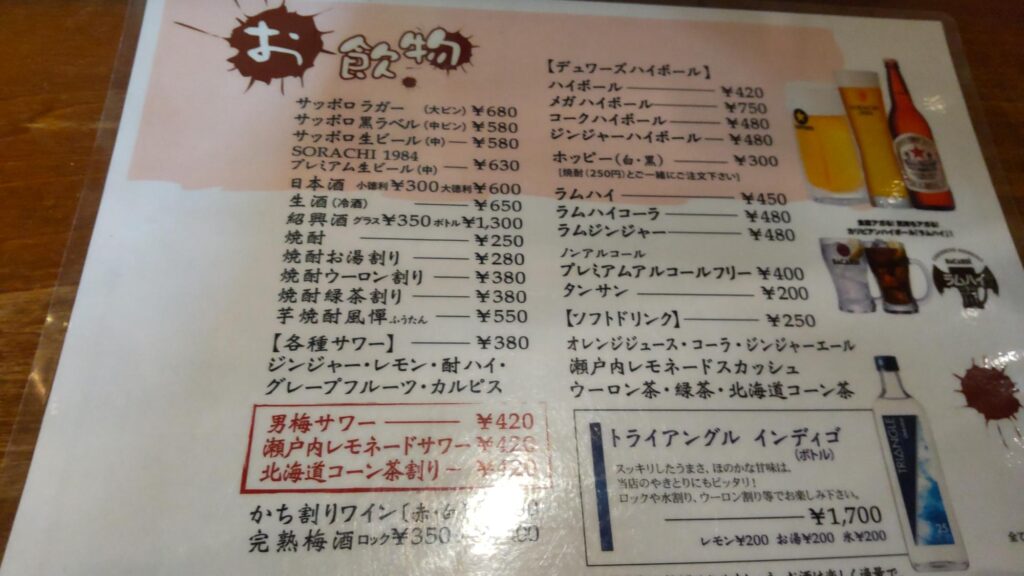 お飲物
サッポロラガー(大ビン)¥680
サッポロ黒ラベル(中ビン)¥580
サッポロ生ビール(中)―¥580
SORACHI 1984
プレミアム生ビール(中)―¥630
日本酒 小徳利¥300大徳利¥600
生酒(冷酒)――¥650
紹興酒グラス¥350ボトル¥1,300
焼酎――¥250
焼酎お湯割り――¥280
焼酎ウーロン割り――¥380
焼酎緑茶割り――¥380
芋焼酎風憚ふうたん―¥550
【各種サワー】――¥380
ジンジャー・レモン・酎ハイ・
グレープフルーツ・カルピス
男梅サワー――¥420
瀬戸内レモネードサワー―¥420
北海道コーン茶割り―¥420
かち割りワイン(赤・白
完熟梅酒ロック¥350
【デュワーズハイボール】
ハイボール――¥420
メガハイボール――¥750
コークハイボール――¥480
ジンジャーハイボール――¥480
ホッピー(白・黒)――¥300
[焼酎(250円)とご一緒にご注文下さい]
ラムハイ――¥450
ラムハイコーラ――¥480
ラムジンジャー――¥480
ノンアルコール
プレミアムアルコールフリー―¥400
タンサン――¥200
【ソフトドリンク】――¥250
オレンジジュース・コーラ・ジンジャーエール
瀬戸内レモネードスカッシュ
ウーロン茶・緑茶・北海道コーン茶
トライアングル インディゴ
(ボトル)
スッキリしたうまさ、ほのかな甘味は、
当店のやきとりにもピッタリ!
ロックや水割り、ウーロン割り等でお楽しみ下さい。
――¥1,700
レモン¥200 お湯¥200 氷¥200
カリビアンハイボール「ラムハイ」!
BACARDI
ラムハイ
TRIANGLE
25
全て
お酒は楽しく適量で